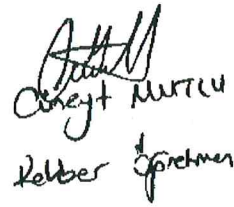 Cüneyt MUTLU
Rehber Öğretmen